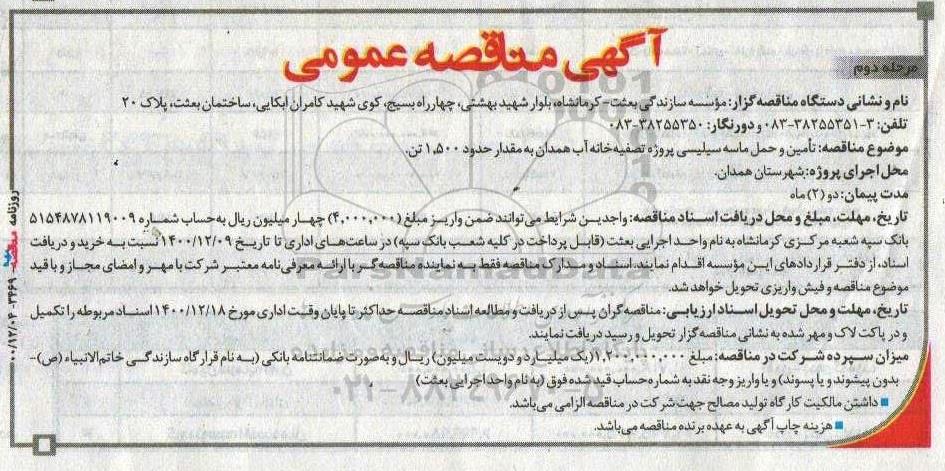 آگهی مناقصه عمومی
مرحله دوم
نام و نشانی دستگاه مناقصه‌گزار: مؤسسه سازندگی بعثت- کرمانشاه، بلوار شهید بهشتی، چهارراه بسیج، کوی شهید کامران ابکایی، ساختمان بعثت، پلاک ۲۰
تلفن: ۳-۳۸۲۵۵۳۵۱-۰۸۳ و دورنگار: ۳۸۲۵۵۳۵۰-۰۸۳
موضوع مناقصه: تأمین و حمل ماسه سیلیسی پروژه تصفیه‌خانه آب همدان به مقدار حدود ۱,۵۰۰ تن.
محل اجرای پروژه: شهرستان همدان.
مدت پیمان: دو (۲) ماه
تاریخ، مهلت، مبلغ و محل دریافت اسناد مناقصه: واجدین شرایط می‌توانند ضمن واریز مبلغ (۴,۰۰۰,۰۰۰) چهار میلیون ریال به‌حساب شماره ۵۱۵۴۸۷۸۱۱۹۰۰۹
بانک سپه شعبه مرکزی کرمانشاه به نام واحد اجرایی بعثت (قابل پرداخت در کلیه شعب بانک سپه) در ساعت‌های اداری تا تاریخ ۱۴۰۰/۱۲/۰۹ نسبت به خرید و دریافت
اسناد، از دفتر قراردادهای این مؤسسه اقدام نمایند، اسناد و مدارک مناقصه فقط به نماینده مناقصه‌گر با ارائه معرفی‌نامه معتبر شرکت با مهر و امضای مجاز و با قید
موضوع مناقصه و فیش واریزی تحویل خواهد شد.
تاریخ، مهلت و محل تحویل اسناد ارزیابی: مناقصه‌گران پس از دریافت و مطالعه اسناد مناقصه حداکثر تا پایان وقت اداری مورخ ۱۴۰۰/۱۲/۱۸ اسناد مربوطه را تکمیل
و در پاکت لاک و مهر شده به نشانی مناقصه‌گزار تحویل و رسید دریافت نمایند.
میزان سپرده شرکت در مناقصه: مبلغ ۱,۲۰۰,۰۰۰,۰۰۰ (یک میلیارد و دویست میلیون) ریال و به‌صورت ضمانتنامه بانکی (به نام قرارگاه سازندگی خاتم‌الانبیاء (ص)-
بدون پیشوند و یا پسوند) و یا واریز وجه نقد به شماره حساب قید شده فوق (به نام واحد اجرایی بعثت)
■ داشتن مالکیت کارگاه تولید مصالح جهت شرکت در مناقصه الزامی می‌باشد.
■ هزینه چاپ آگهی به عهده برنده مناقصه می‌باشد.
روزنامه
۰۰/۱۲/۰۴-۳۶۶۹
۰۲۱-۸۸۳۴۹۶۷۰